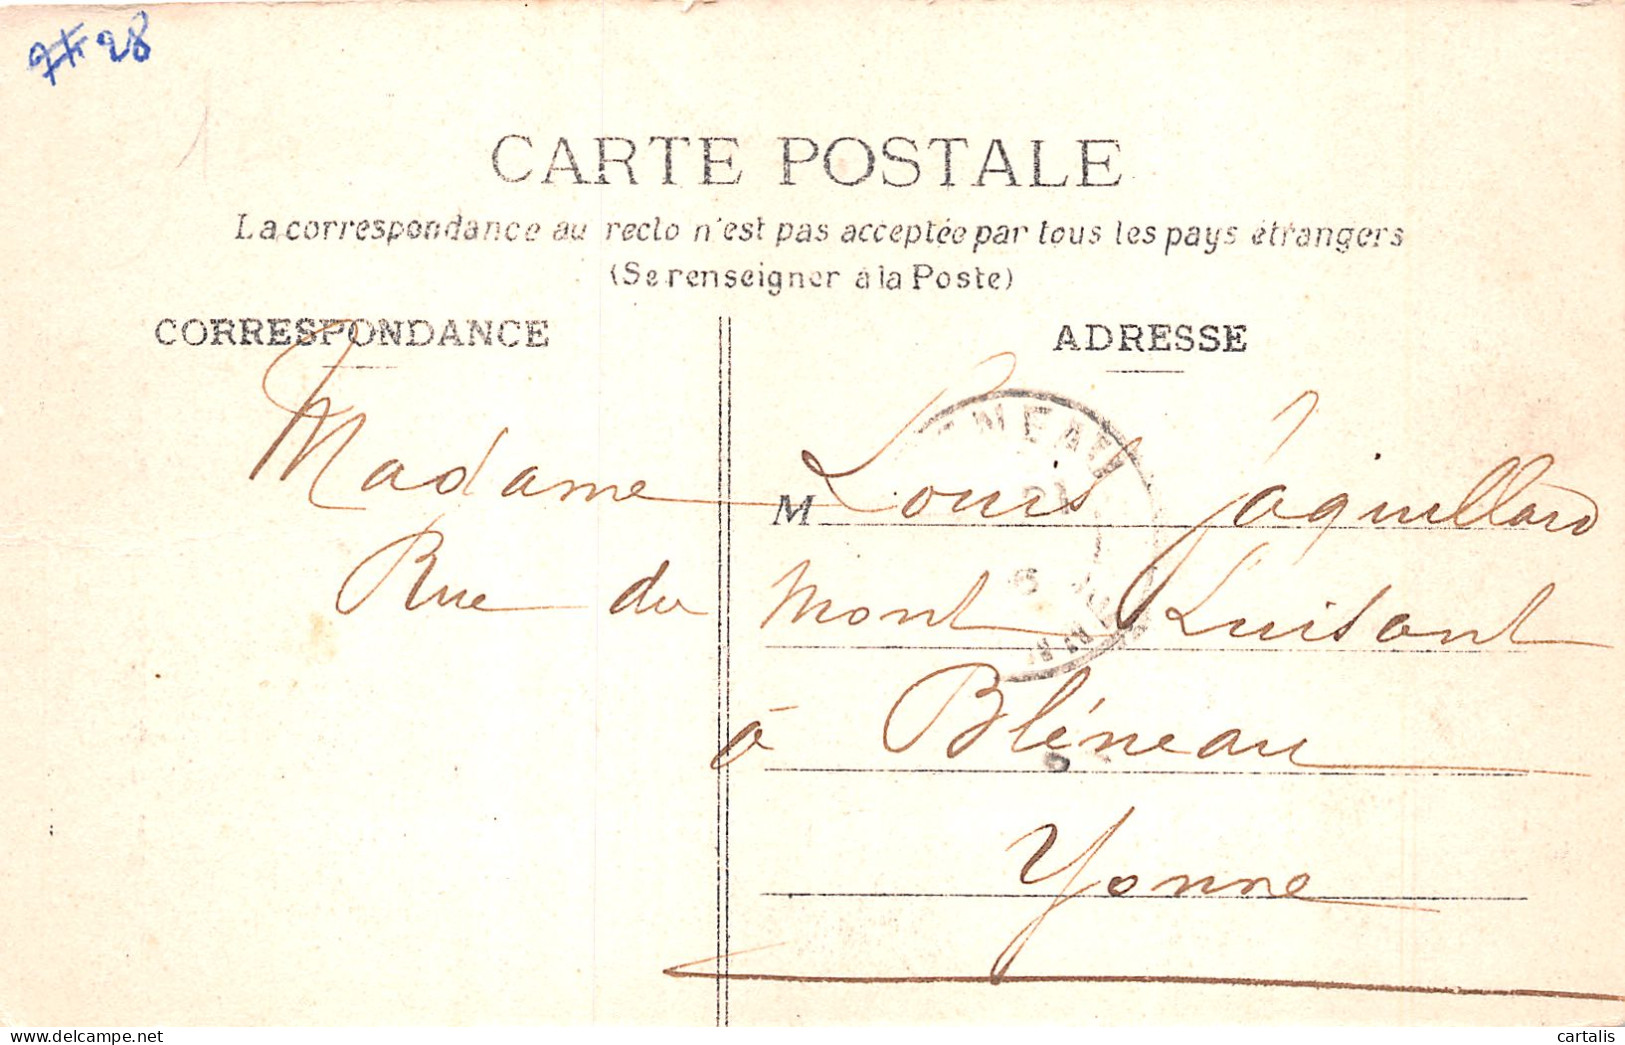 28
CARTE POSTALE
La correspondance au recto n'est pas acceptée par tous les pays étrangers
(Se renseigner à la Poste)
CORRESPONDANCE
ADRESSE
Madame M Louis Jaquillard
Rue du Mont Luisant
à Bléneau
Yonne
cartalis